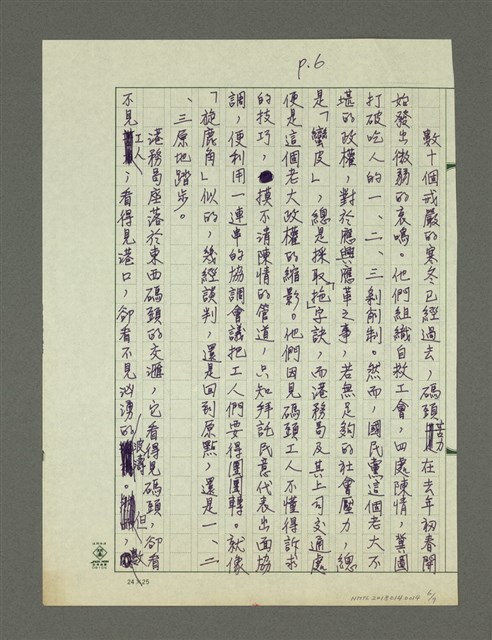 p.6
數十個戒嚴的寒冬已經過去，碼頭苦力在去年初春開
始發出微弱的哀鳴。他們組織自救工會，四處陳情，冀圖
打破吃人的一、二、三剝削制。然而，國民黨這個老大不
堪的政權，對於應興應革之事，若無足夠的社會壓力，總
是「蠻皮」，總是採取「拖」字訣，而港務局及其上司交通處
便是這個老大政權的縮影。他們因見碼頭工人不懂得訴求
的技巧，摸不清陳情的管道，只知拜託民意代表出面協
調，便利用一連串的協調會議把工人們耍得團團轉。就像
「旋鹿角」似的，幾經談判，還是回到原點，還是一、二
、三原地踏步。
港務局座落於東西碼頭的交滙，它看得見碼頭，卻看
不見工人，看得見港口，卻看不見洶湧的波濤。但，數
24×25
NMTL20180140004 6/9